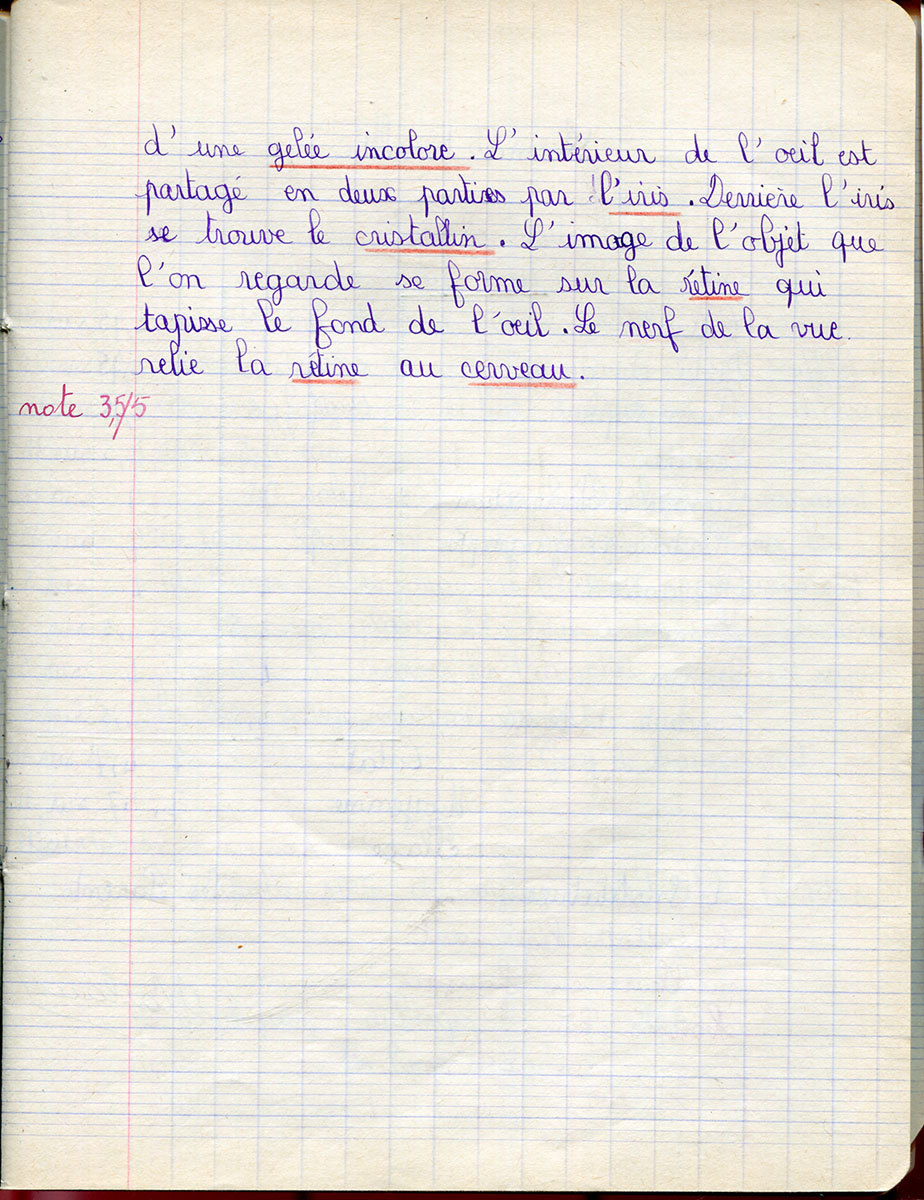 d'une gelée incolore. L'intérieur de l'oeil est
partagé en deux parties par l'iris. Derrière l'iris
se trouve le cristallin. L'image de l'objet que
l'on regarde se forme sur la rétine qui
tapisse le fond de l'oeil. Le nerf de la vue
relie la rétine au cerveau.
note 3,5/5